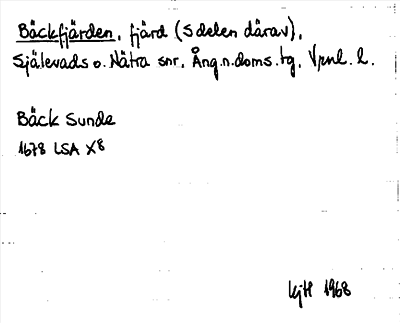 Bäckfjärden, fjärd (S delen därav),
Själevads o. Nätra snr, Ång.n.doms.tg, Vrnl. l.
Bäck Sunde
1678 LSA X8
KjH 1968